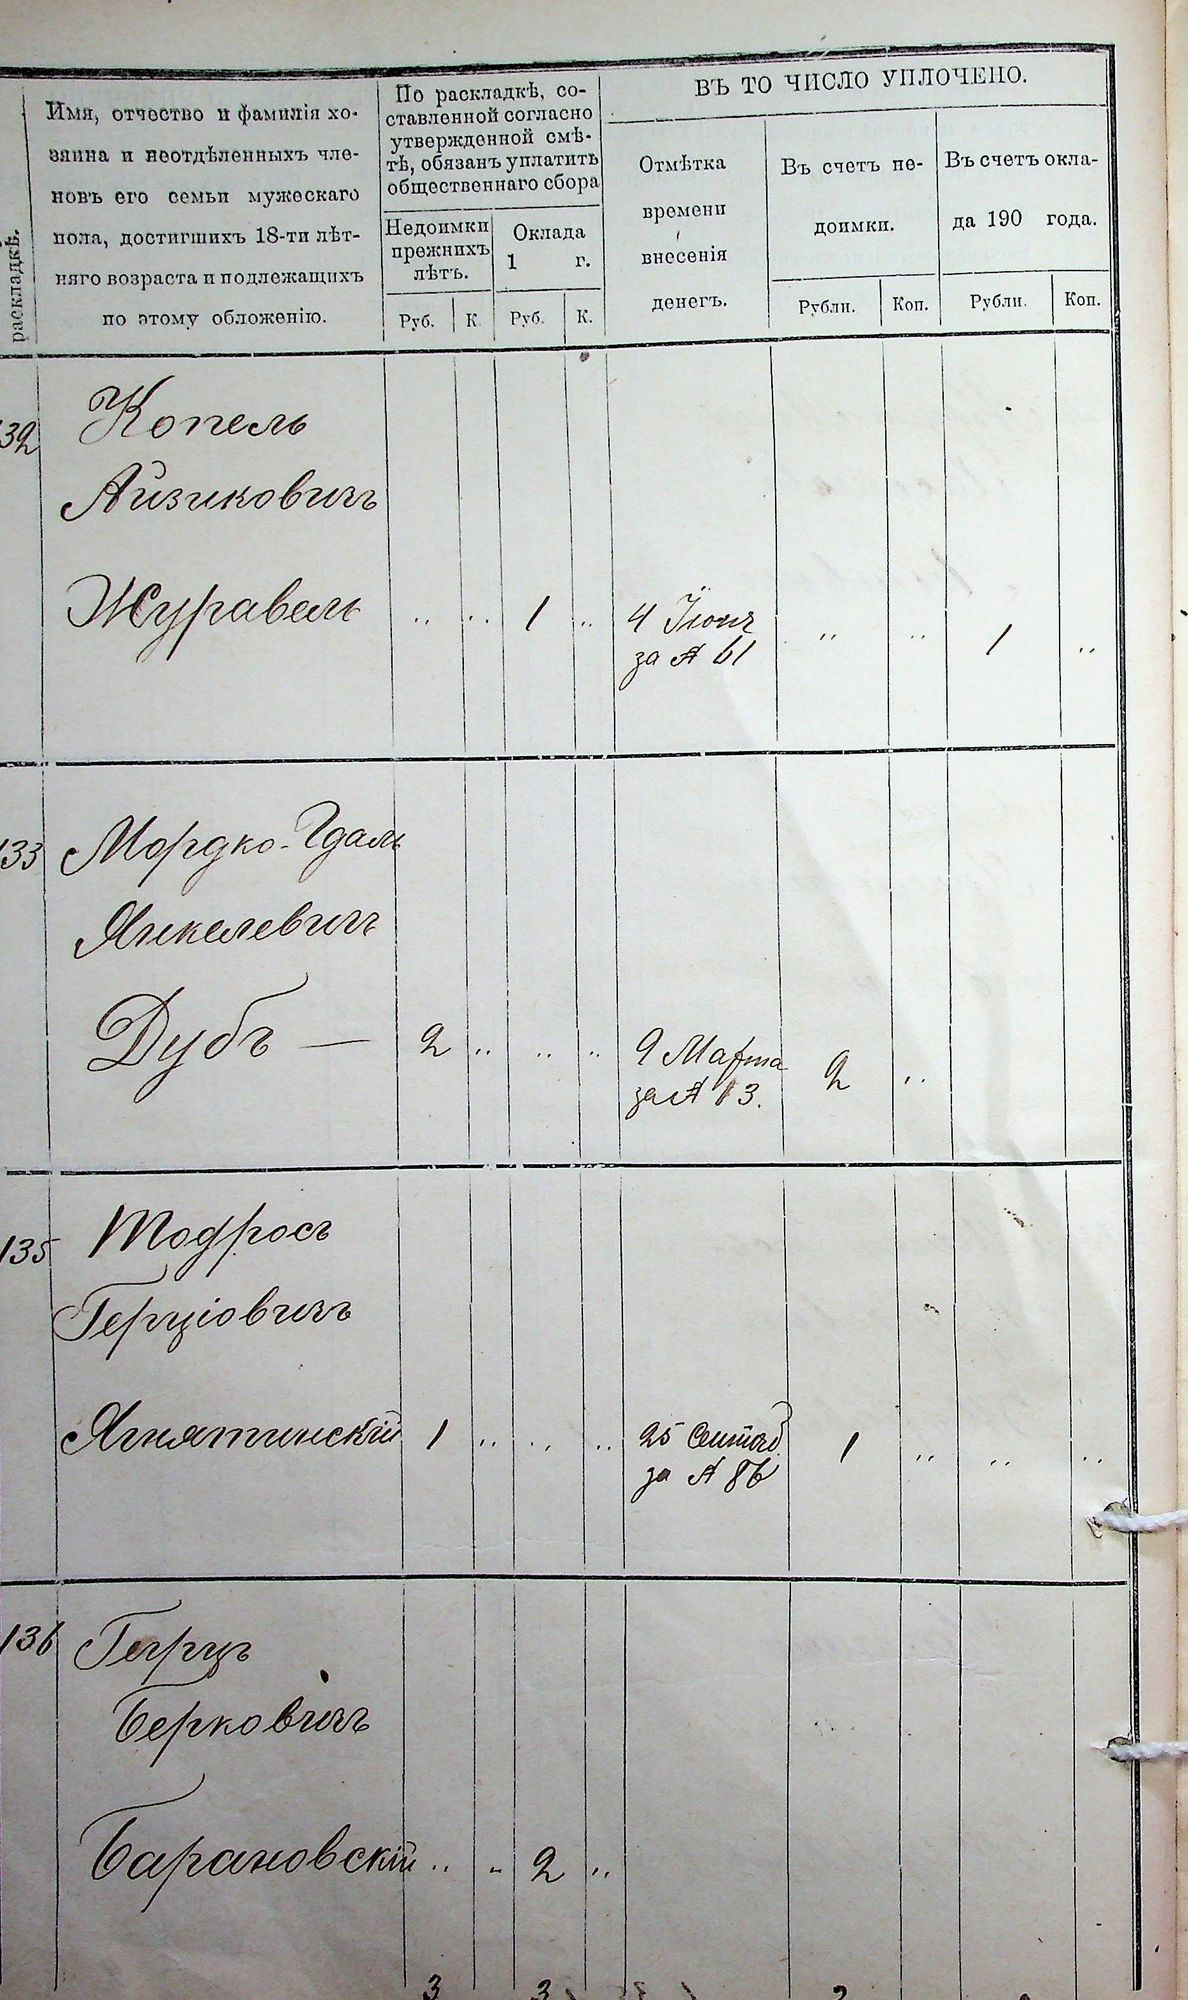 раскладкѣ.
Имя, отчество и фамилія хо-
зяина и неотдѣленныхъ чле-
новъ его семьи мужескаго
пола, достигшихъ 18-ти лѣт-
няго возраста и подлежащихъ
по этому обложенію.
По раскладкѣ, со-
ставленной согласно
утвержденной смѣ-
тѣ, обязанъ уплатить
общественнаго сбора
Недоимки
прежнихъ
лѣтъ.
Руб. К.
Оклада
1 г.
Руб. К.
ВЪ ТО ЧИСЛО УПЛОЧЕНО.
Отмѣтка
времени
внесенія
денегъ.
Въ счетъ не-
доимки.
Рубли. Коп.
Въ счетъ окла-
да 190 года.
Рубли. Коп.
132 Копель
Айзиковичъ
Журавель .. .. 1 .. 4 Іюня .. .. 1 ..
за № 61
133 Мордко-Гдаль
Янкелевичъ
Дубъ — 2 .. .. .. 9 Марта 2 ..
за № 13.
135 Тодросъ
Герціовичъ
Ягнятинскій 1 .. .. .. 25 Сентяб. 1 .. .. ..
за № 86
136 Герцъ
Берковичъ
Барановскій .. .. 2 ..
3 3 2